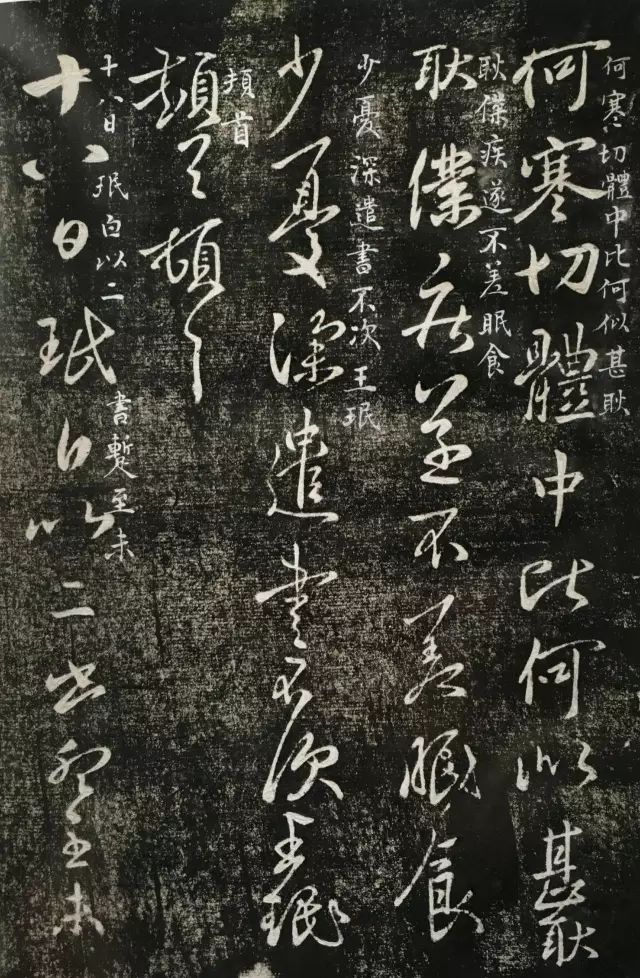 何寒切體中比何似甚耿
何寒切體中比何似甚耿
耿僕疾遂不差眠食
耿僕疾遂不差眠食
少憂深遣書不次王珉
少憂深遣書不次王珉
頓首
頓首頓首
十八日珉白以二
書暫至未
十八日珉白以二書暫至未